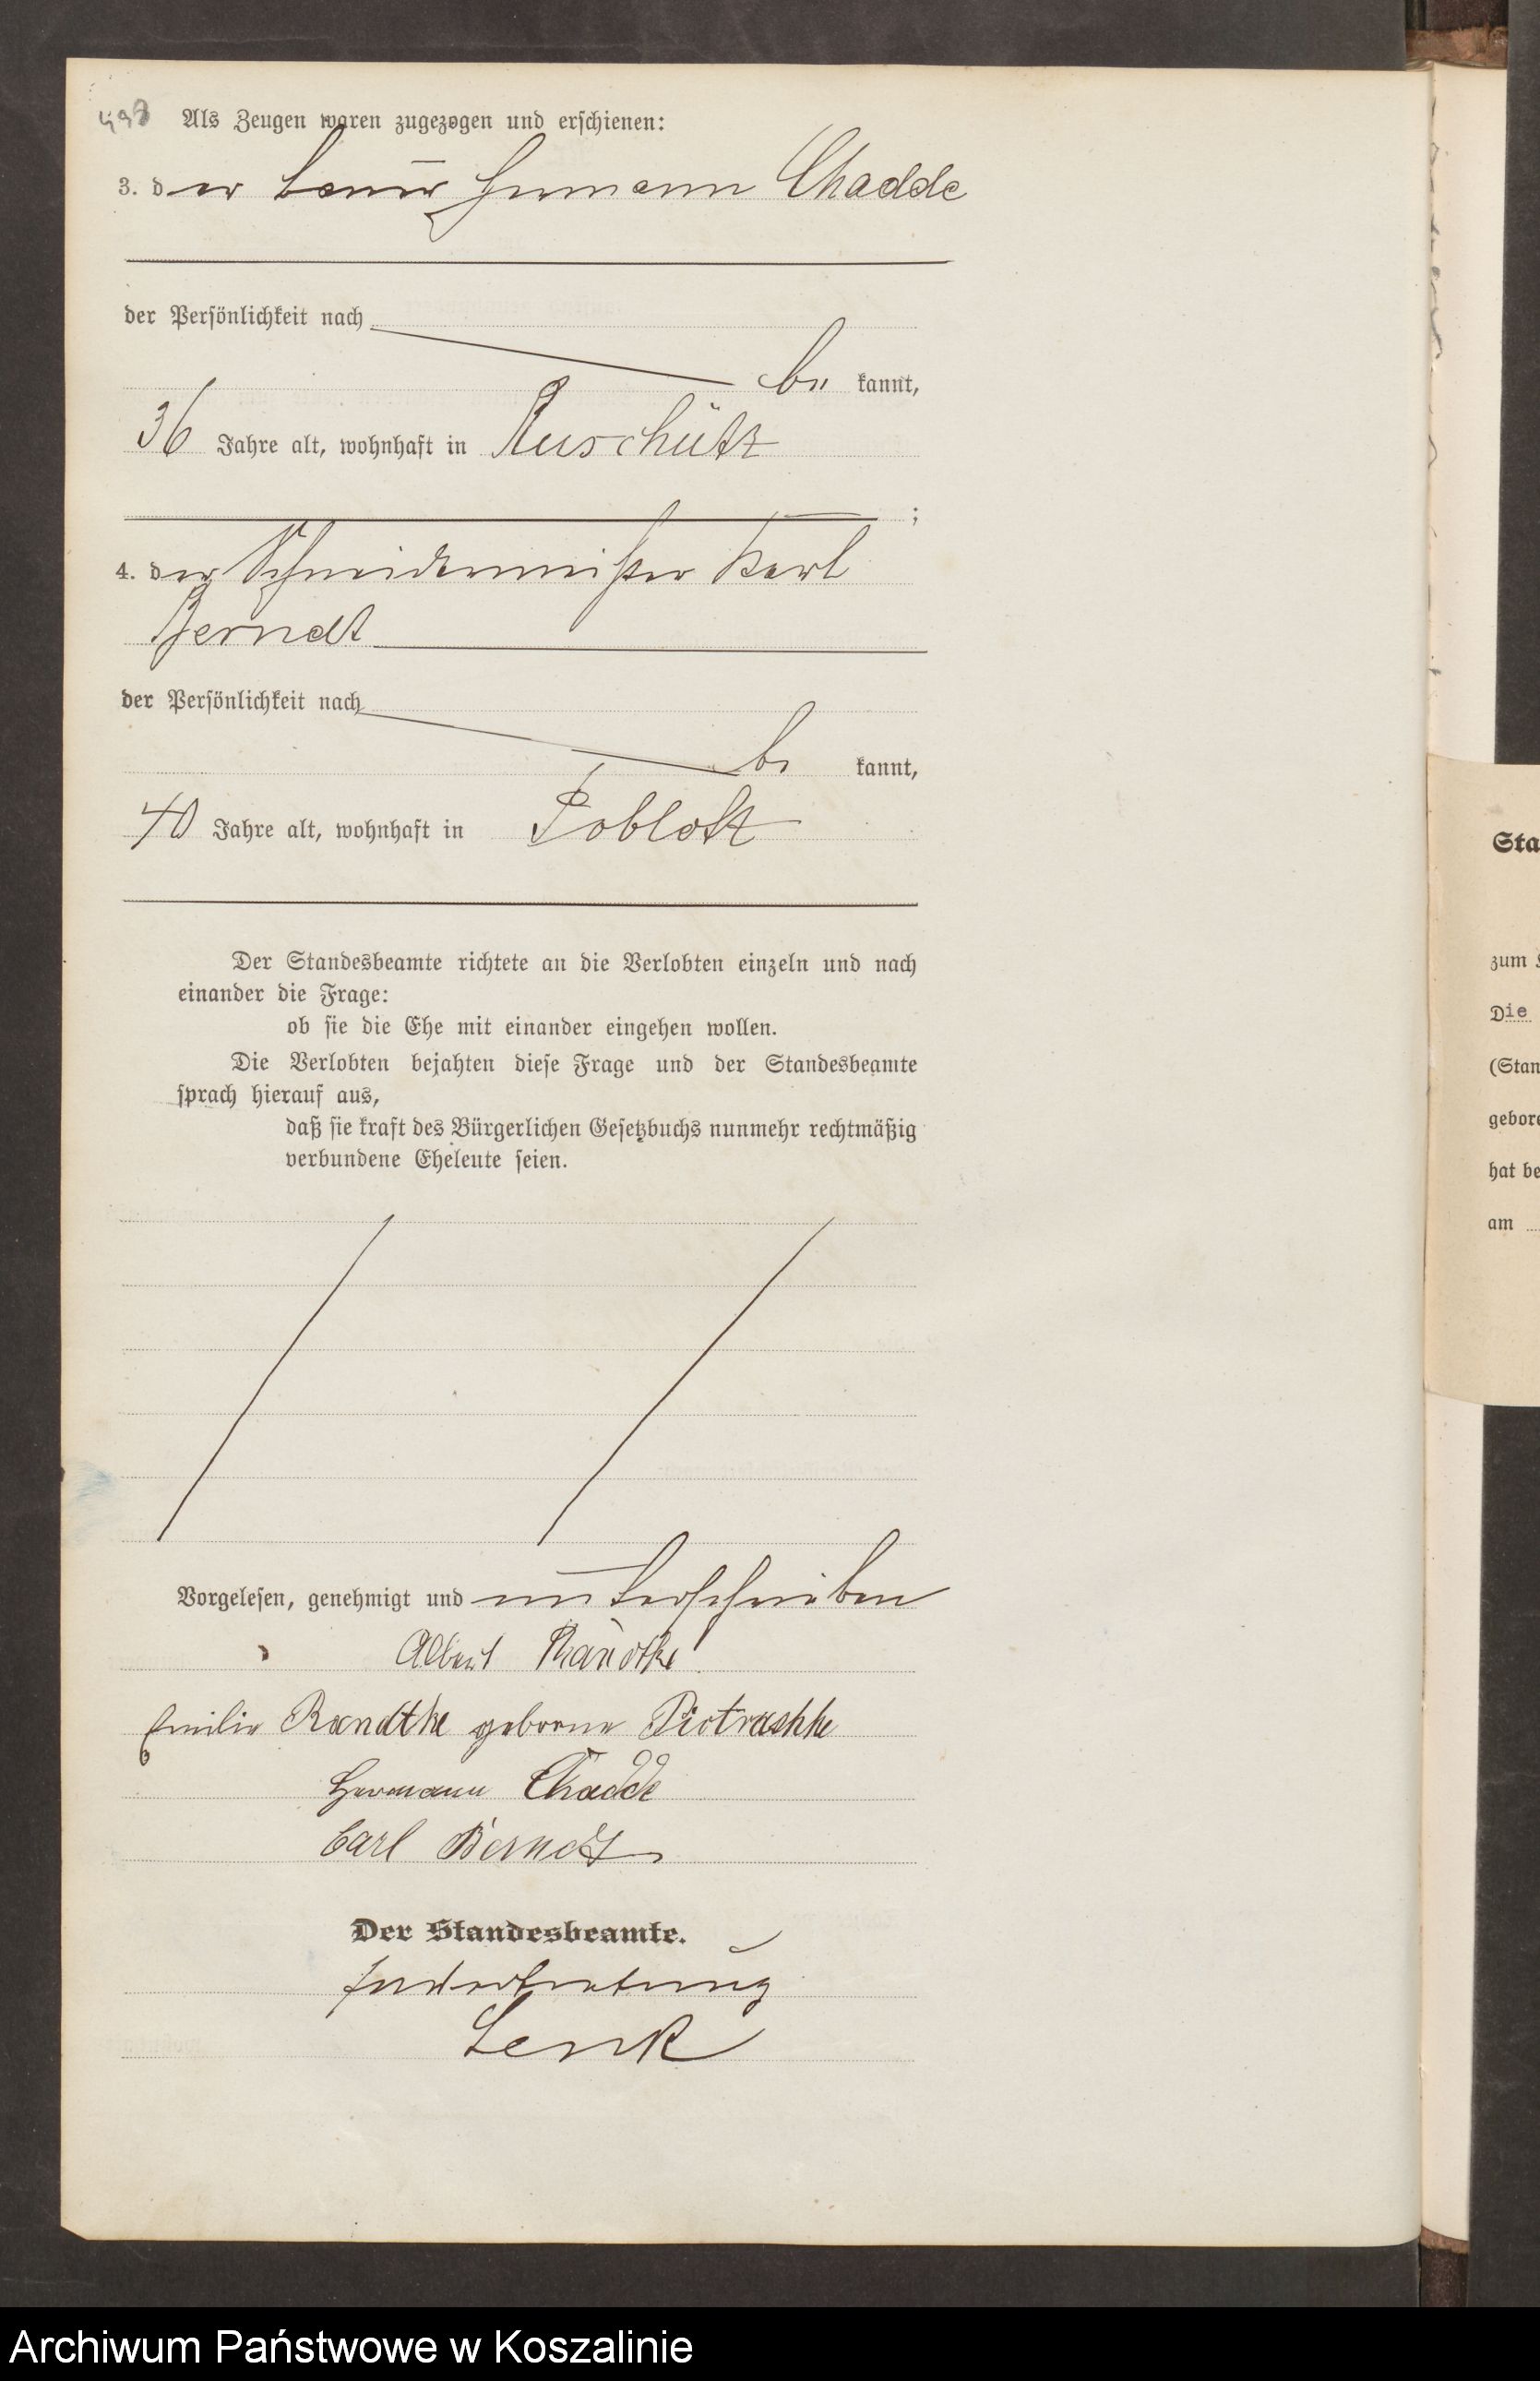 498 Als Zeugen waren zugezogen und erschienen:
3. der Bauer Hermann Chadde
der Persönlichkeit nach
be kannt,
36 Jahre alt, wohnhaft in Ruschütz
;
4. der Schneidermeister Karl
Berndt
der Persönlichkeit nach
be kannt,
40 Jahre alt, wohnhaft in Poblotz
Der Standesbeamte richtete an die Verlobten einzeln und nach
einander die Frage:
ob sie die Ehe mit einander eingehen wollen.
Die Verlobten bejahten diese Frage und der Standesbeamte
sprach hierauf aus,
daß sie kraft des Bürgerlichen Gesetzbuchs nunmehr rechtmäßig
verbundene Eheleute seien.
Vorgelesen, genehmigt und unterschrieben
Albert Randtke
Emilie Randtke geborne Piotraschke
Hermann Chadde
Carl Berndt
Der Standesbeamte.
In Vertretung
Lenk
Sta
zum
Die
(Stan
gebore
hat be
am
Archiwum Państwowe w Koszalinie